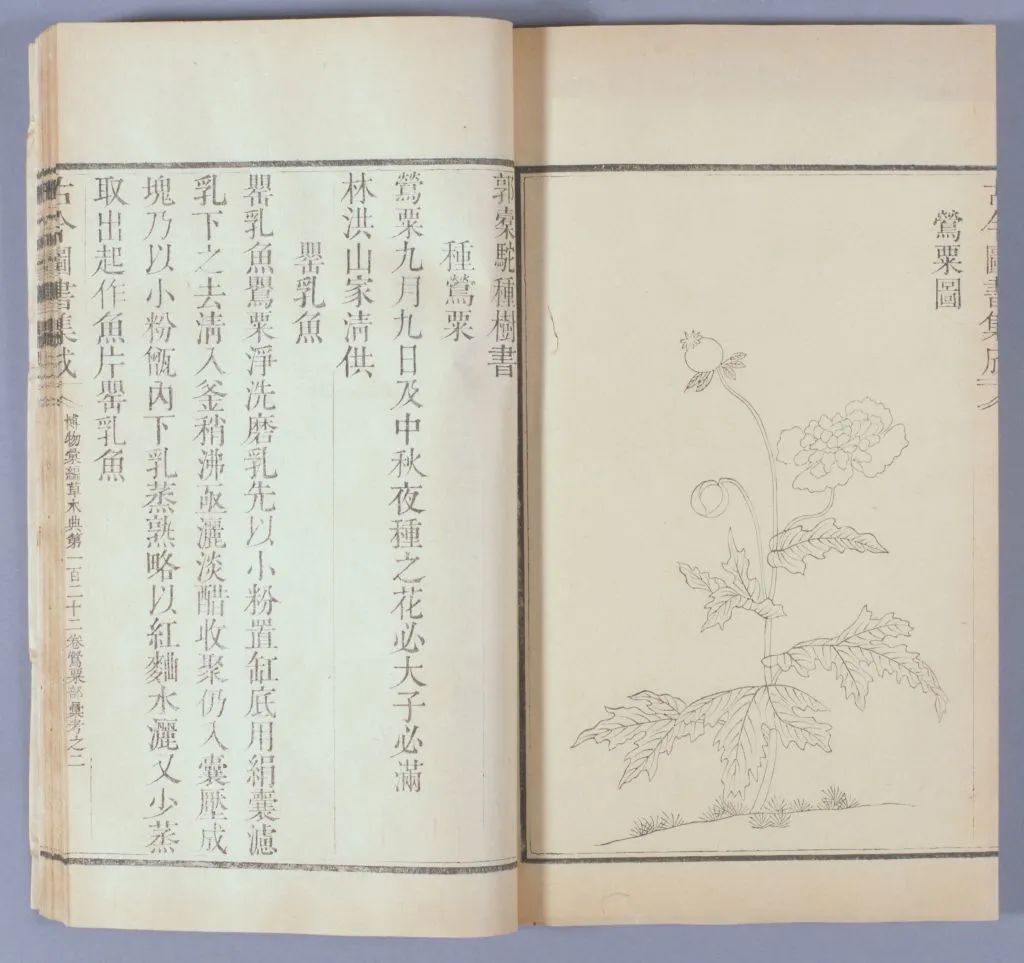 鶯粟圖
郭橐駝種樹書
種鶯粟
鶯粟九月九日及中秋夜種之花必大子必滿
林洪山家清供
罌乳魚
罌乳魚罌粟淨洗磨乳先以小粉置缸底用絹囊濾
乳下之去清入釜稍沸亟灑淡醋收聚仍入囊壓成
塊乃以小粉甑內下乳蒸熟略以紅麯水灑又少蒸
取出起作魚片罌乳魚
古今圖書集成
博物彙編草木典第一百二十二卷鶯粟部彙考之二